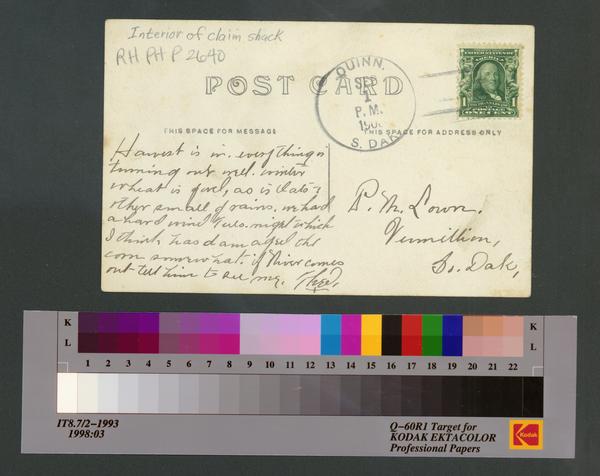 Interior of claim shack
RH PH P 2640
POST CARD
QUINN,
SEP
1
P. M.
S. DAK.
UNITED STATES OF AMERICA
1 POSTAGE 1
ONE CENT
THIS SPACE FOR MESSAGE
THIS SPACE FOR ADDRESS ONLY
Harvest is in. everything is
turning out well. winter
wheat is good, as is Oats &
other small grains. we had
a hard wind Tues. night which
I think has damaged the
corn somewhat. if Oliver comes
out tell him to see me. Theo.
P. M. Lown.
Vermillion,
So. Dak,
K
L
1 2 3 4 5 6 7 8 9 10 11 12 13 14 15 16 17 18 19 20 21 22
K
L
IT8.7/2–1993
1998:03
Q–60R1 Target for
KODAK EKTACOLOR
Professional Papers
Kodak